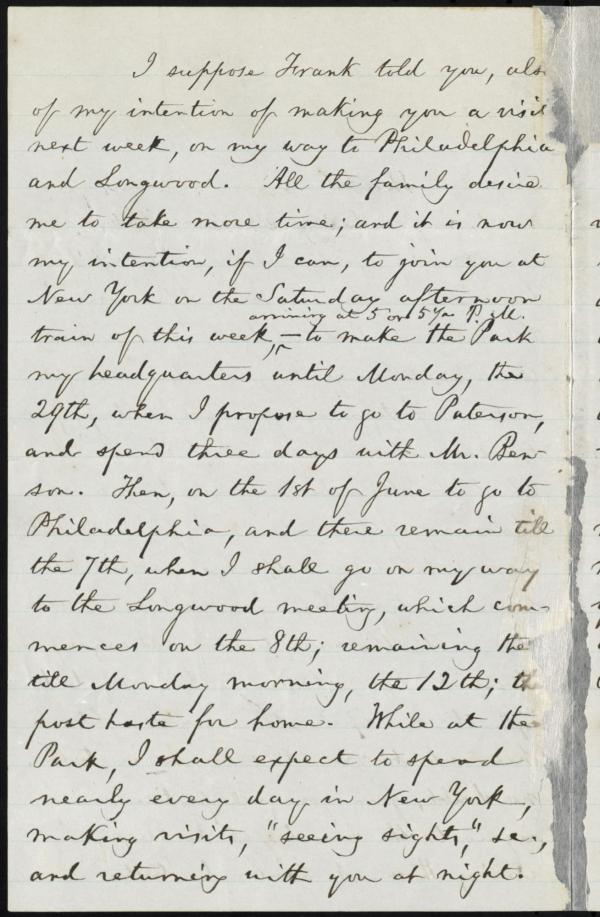 I suppose Frank told you, als
of my intention of making you a visit
next week, on my way to Philadelphia
and Longwood. All the family desire
me to take more time; and it is now
my intention, if I can, to join you at
New York on the Saturday afternoon
arriving at 5 or 5 1/2 P. M.
train of this week, — to make the Park
my headquarters until Monday, the
29th, when I propose to go to Paterson,
and spend three days with Mr. Ben-
son. Then, on the 1st of June to go to
Philadelphia, and there remain till
the 7th, when I shall go on my way
to the Longwood meeting, which com-
mences on the 8th; remaining the
till Monday morning, the 12th; th
post haste for home. While at the
Park, I shall expect to spend
nearly every day in New York,
making visits, "seeing sights," &c.,
and returning with you at night.